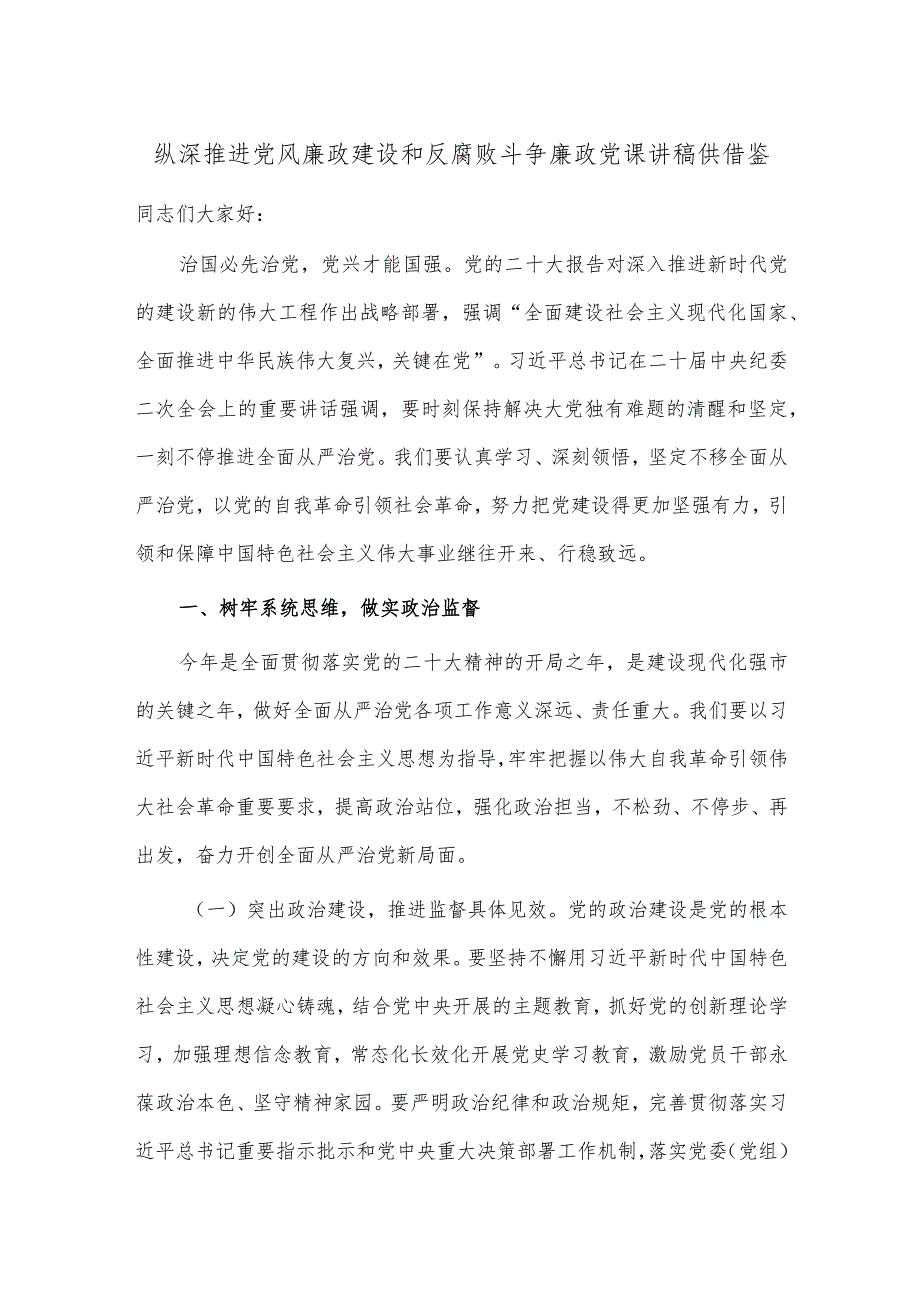 纵深推进党风廉政建设和反腐败斗争廉政党课讲稿供借鉴
同志们大家好：
治国必先治党，党兴才能国强。党的二十大报告对深入推进新时代党
的建设新的伟大工程作出战略部署，强调“全面建设社会主义现代化国家、
全面推进中华民族伟大复兴，关键在党”。习近平总书记在二十届中央纪委
二次全会上的重要讲话强调，要时刻保持解决大党独有难题的清醒和坚定，
一刻不停推进全面从严治党。我们要认真学习、深刻领悟，坚定不移全面从
严治党，以党的自我革命引领社会革命，努力把党建设得更加坚强有力，引
领和保障中国特色社会主义伟大事业继往开来、行稳致远。
一、树牢系统思维，做实政治监督
今年是全面贯彻落实党的二十大精神的开局之年，是建设现代化强市
的关键之年，做好全面从严治党各项工作意义深远、责任重大。我们要以习
近平新时代中国特色社会主义思想为指导，牢牢把握以伟大自我革命引领伟
大社会革命重要要求，提高政治站位，强化政治担当，不松劲、不停步、再
出发，奋力开创全面从严治党新局面。
（一）突出政治建设，推进监督具体见效。党的政治建设是党的根本
性建设，决定党的建设的方向和效果。要坚持不懈用习近平新时代中国特色
社会主义思想凝心铸魂，结合党中央开展的主题教育，抓好党的创新理论学
习，加强理想信念教育，常态化长效化开展党史学习教育，激励党员干部永
葆政治本色、坚守精神家园。要严明政治纪律和政治规矩，完善贯彻落实习
近平总书记重要指示批示和党中央重大决策部署工作机制，落实党委（党组）